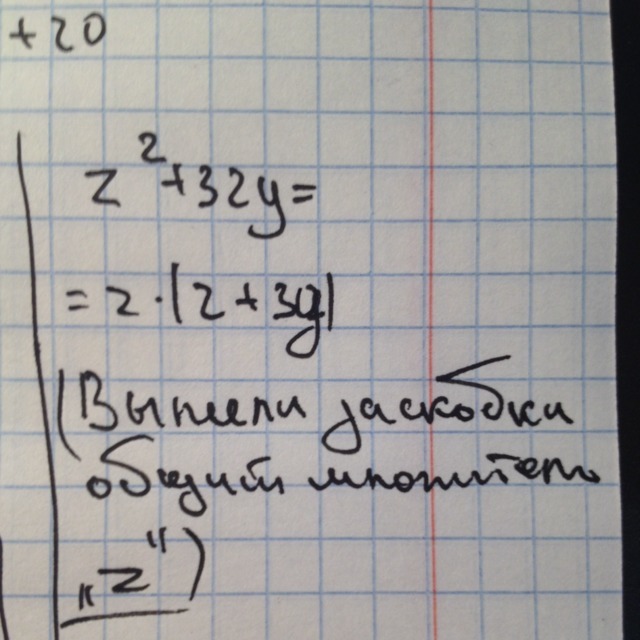 +20
z²+3zy=
=z·(z+3y)
(Вынесли за скобки
общий множитель
„z“)